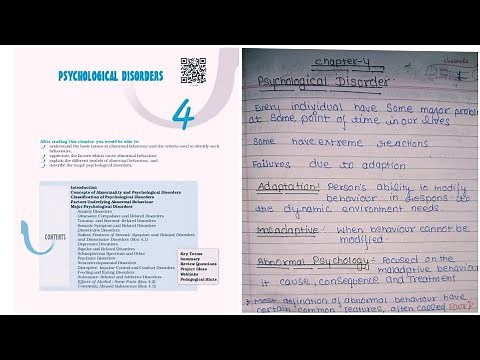 PSYCHOLOGICAL DISORDERS
4
After reading this chapter, you would be able to:
understand the basic issues in abnormal behaviour and the criteria used to identify such
behaviours,
appreciate the factors which cause abnormal behaviour,
explain the different models of abnormal behaviour, and
describe the major psychological disorders.
CONTENTS
Introduction
Concepts of Abnormality and Psychological Disorders
Classification of Psychological Disorders
Factors Underlying Abnormal Behaviour
Major Psychological Disorders
Anxiety Disorders
Obsessive-Compulsive and Related Disorders
Trauma- and Stressor-Related Disorders
Somatic Symptom and Related Disorders
Dissociative Disorders
Salient Features of Somatic Symptom and Related Disorders
and Dissociative Disorders (Box 4.1)
Depressive Disorders
Bipolar and Related Disorders
Schizophrenia Spectrum and Other
Psychotic Disorders
Neurodevelopmental Disorders
Disruptive, Impulse-Control and Conduct Disorders
Feeding and Eating Disorders
Substance-Related and Addictive Disorders
Effects of Alcohol : Some Facts (Box 4.2)
Commonly Abused Substances (Box 4.3)
Key Terms
Summary
Review Questions
Project Ideas
Weblinks
Pedagogical Hints
chapter-4
Psychological Disorder
Every individual have some major problem
at some point of time in our lives
Some have extreme reactions
Failures due to adaption
Adaptation: Person's ability to modify
behaviour in respons to
the dynamic environment needs.
Maladaptive: When behaviour cannot be
modified.
Abnormal Psychology: Focused on the
maladaptive behaviou
it cause, consequence and treatment
Most defination of abnormal behaviour have
certain common features, often called FOUR D